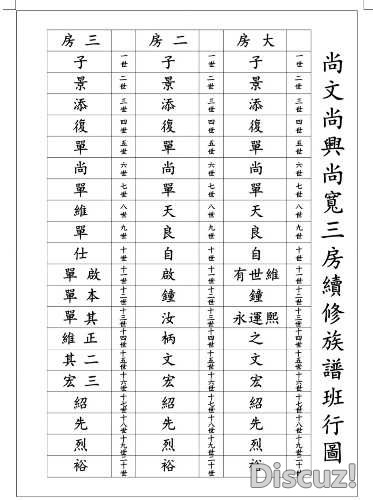 尚文尚興尚寬三房續修族譜班行圖
大房 二房 三房
一世 子 一世 子 一世 子
二世 景 二世 景 二世 景
三世 添 三世 添 三世 添
四世 復 四世 復 四世 復
五世 單 五世 單 五世 單
六世 尚 六世 尚 六世 尚
七世 單 七世 單 七世 單
八世 天 八世 天 八世 維
九世 良 九世 良 九世 單
十世 自 十世 自 十世 仕
十一世 維世有 十一世 啟 十一世 啟單
十二世 鐘 十二世 鐘 十二世 本單
十三世 熙運永 十三世 汝 十三世 其單
十四世 之 十四世 柄 十四世 正維
十五世 文 十五世 文 十五世 二其
十六世 宏 十六世 宏 十六世 三宏
十七世 紹 十七世 紹 十七世 紹
十八世 先 十八世 先 十八世 先
十九世 烈 十九世 烈 十九世 烈
二十世 裕 二十世 裕 二十世 裕
Discuz!